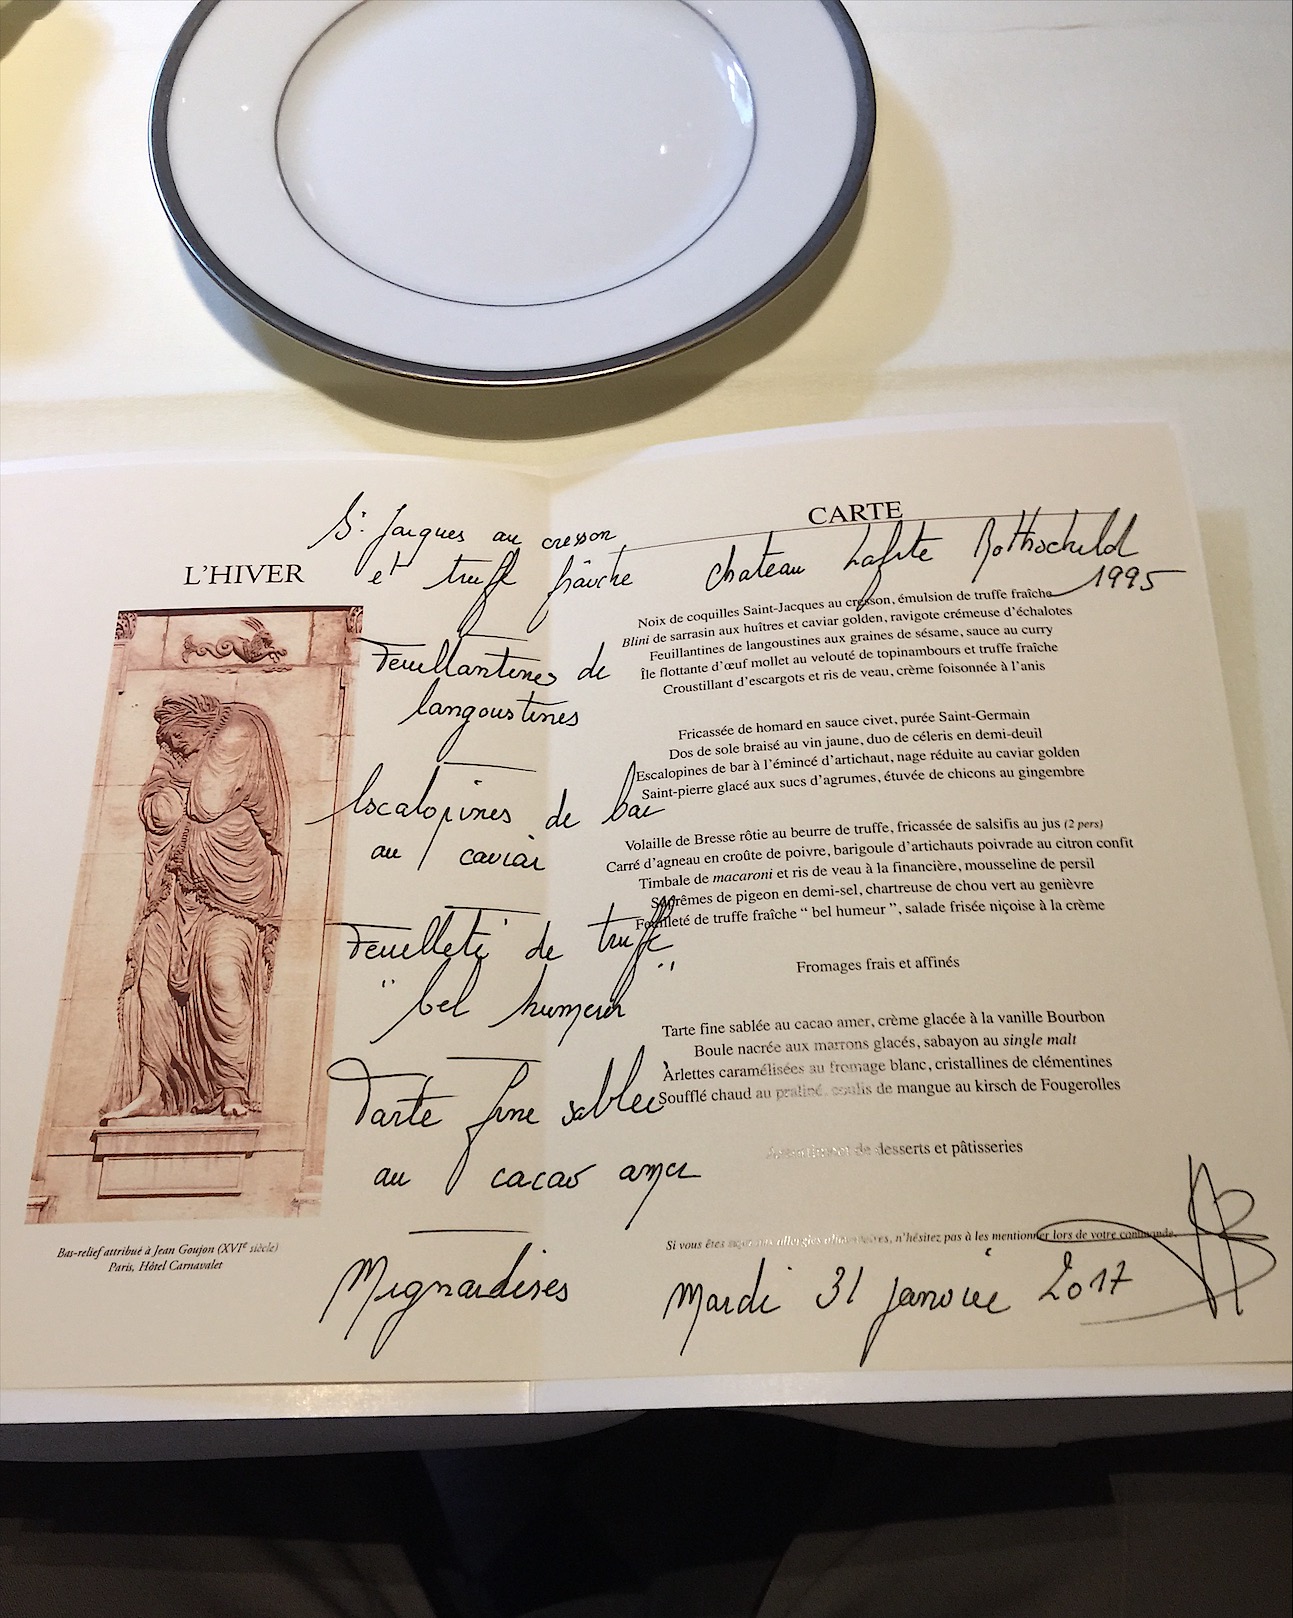 L'HIVER
St Jacques au cresson
et truffe fraîche
Feuillantines de
langoustines
Escalopines de bar
au caviar
Feuilleté de truffe
"bel humeur"
Tarte fine sablée
au cacao amer
Mignardises
Bas-relief attribué à Jean Goujon (XVIe siècle)
Paris, Hôtel Carnavalet
CARTE
Chateau Lafite Rothschild
1995
Noix de coquilles Saint-Jacques au cresson, émulsion de truffe fraîche
Blini de sarrasin aux huîtres et caviar golden, ravigote crémeuse d'échalotes
Feuillantines de langoustines aux graines de sésame, sauce au curry
Île flottante d'œuf mollet au velouté de topinambours et truffe fraîche
Croustillant d'escargots et ris de veau, crème foisonnée à l'anis
Fricassée de homard en sauce civet, purée Saint-Germain
Dos de sole braisé au vin jaune, duo de céleris en demi-deuil
Escalopines de bar à l'émincé d'artichaut, nage réduite au caviar golden
Saint-pierre glacé aux sucs d'agrumes, étuvée de chicons au gingembre
Volaille de Bresse rôtie au beurre de truffe, fricassée de salsifis au jus (2 pers)
Carré d'agneau en croûte de poivre, barigoule d'artichauts poivrade au citron confit
Timbale de macaroni et ris de veau à la financière, mousseline de persil
Suprêmes de pigeon en demi-sel, chartreuse de chou vert au genièvre
Feuilleté de truffe fraîche " bel humeur ", salade frisée niçoise à la crème
Fromages frais et affinés
Tarte fine sablée au cacao amer, crème glacée à la vanille Bourbon
Boule nacrée aux marrons glacés, sabayon au single malt
Arlettes caramélisées au fromage blanc, cristallines de clémentines
Soufflé chaud au praliné, coulis de mangue au kirsch de Fougerolles
de desserts et pâtisseries
Si vous êtes allergies alimentaires, n'hésitez pas à les mentionner lors de votre commande.
Mardi 31 janvier 2017